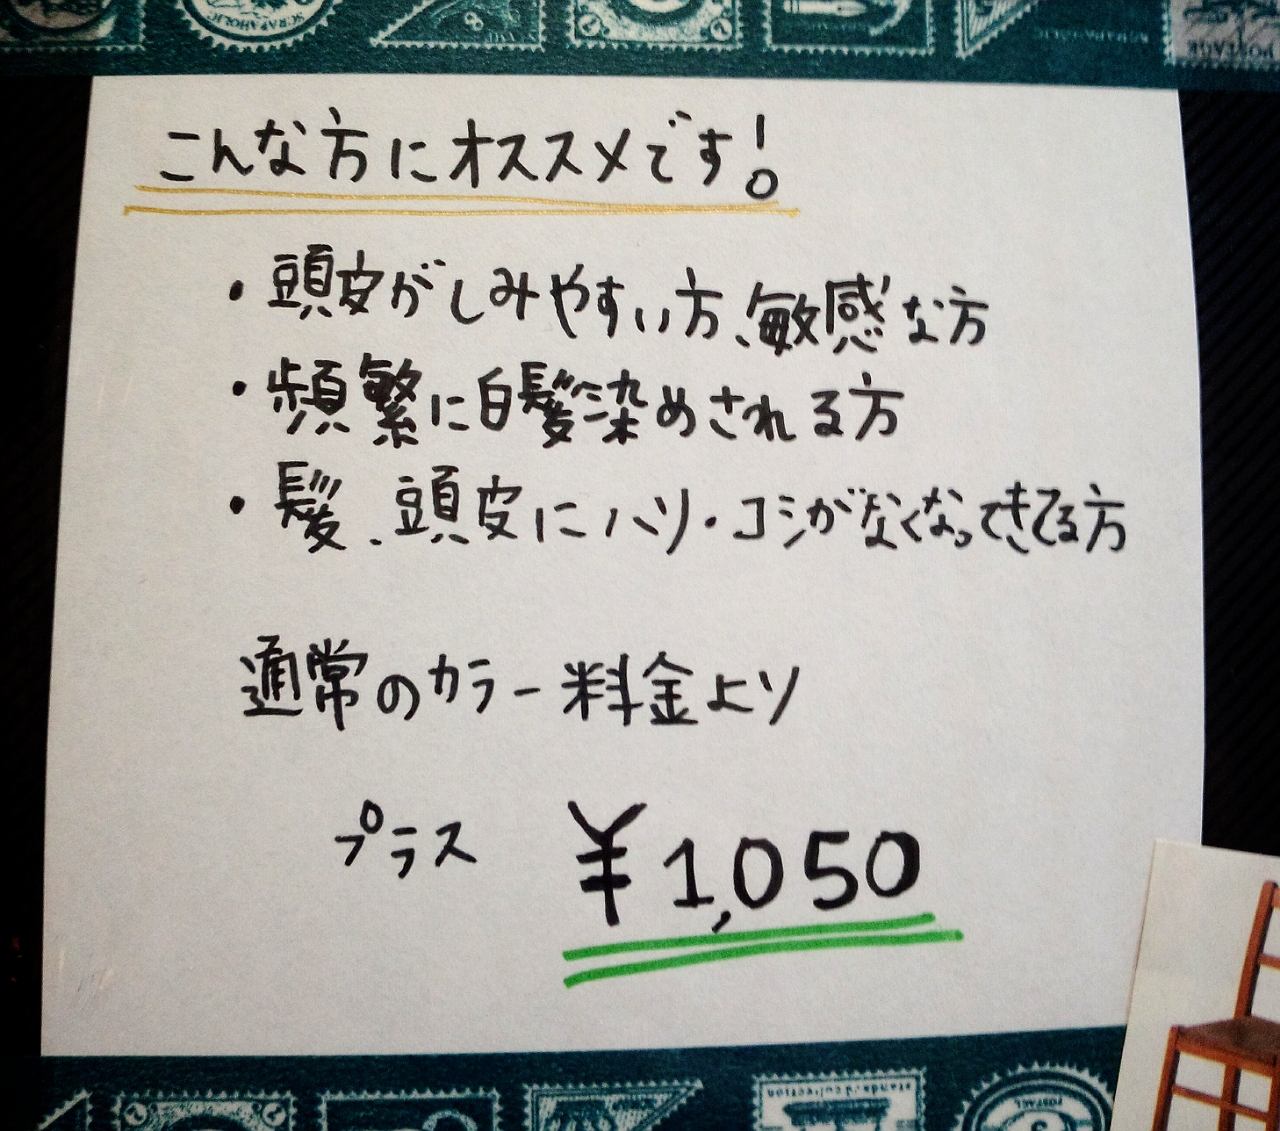 こんな方にオススメです!
・頭皮がしみやすい方、敏感な方
・頻繁に白髪染めされる方
・髪、頭皮にハリ・コシがなくなってきてる方
通常のカラー料金より
プラス ¥1,050